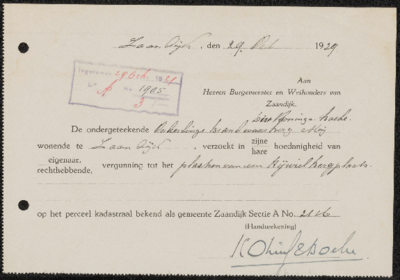 Zaandijk, den 29 Oct 1929
Ingekomen 29 Oct. 1929
No. 1905
3
Aan
Heeren Burgemeester en Wethouders van
Zaandijk.
De ondergeteekende
wonende te Zaandijk, verzoekt in zijne hare hoedanigheid van
eigenaar, rechthebbende, vergunning tot het plaatsen van een Rijwielbergplaats
op het perceel kadastraal bekend als gemeente Zaandijk Sectie A No.
(Handteekening)